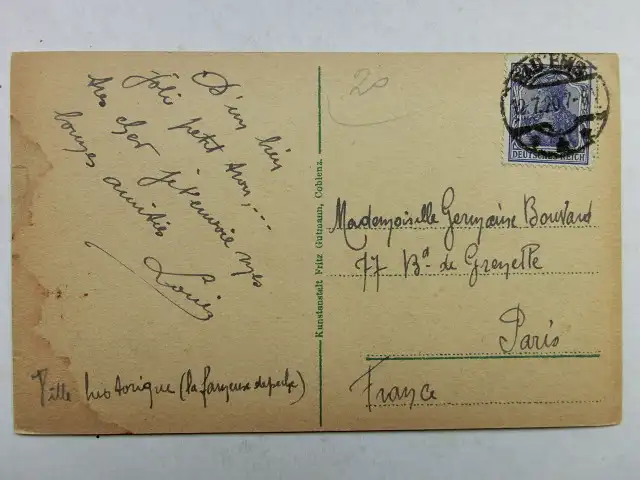 D'un bien
joli petit trou,...
très cher je t'envoie mes
bonnes amitiés
Louis
Ville historique (la fameuse depeche)
Kunstanstalt Fritz Gutmann, Coblenz.
20
BAD EMS
12.7.20.7-
DEUTSCHES REICH
Mademoiselle Germaine Bouvard
77 Bd de Grenelle
Paris
France